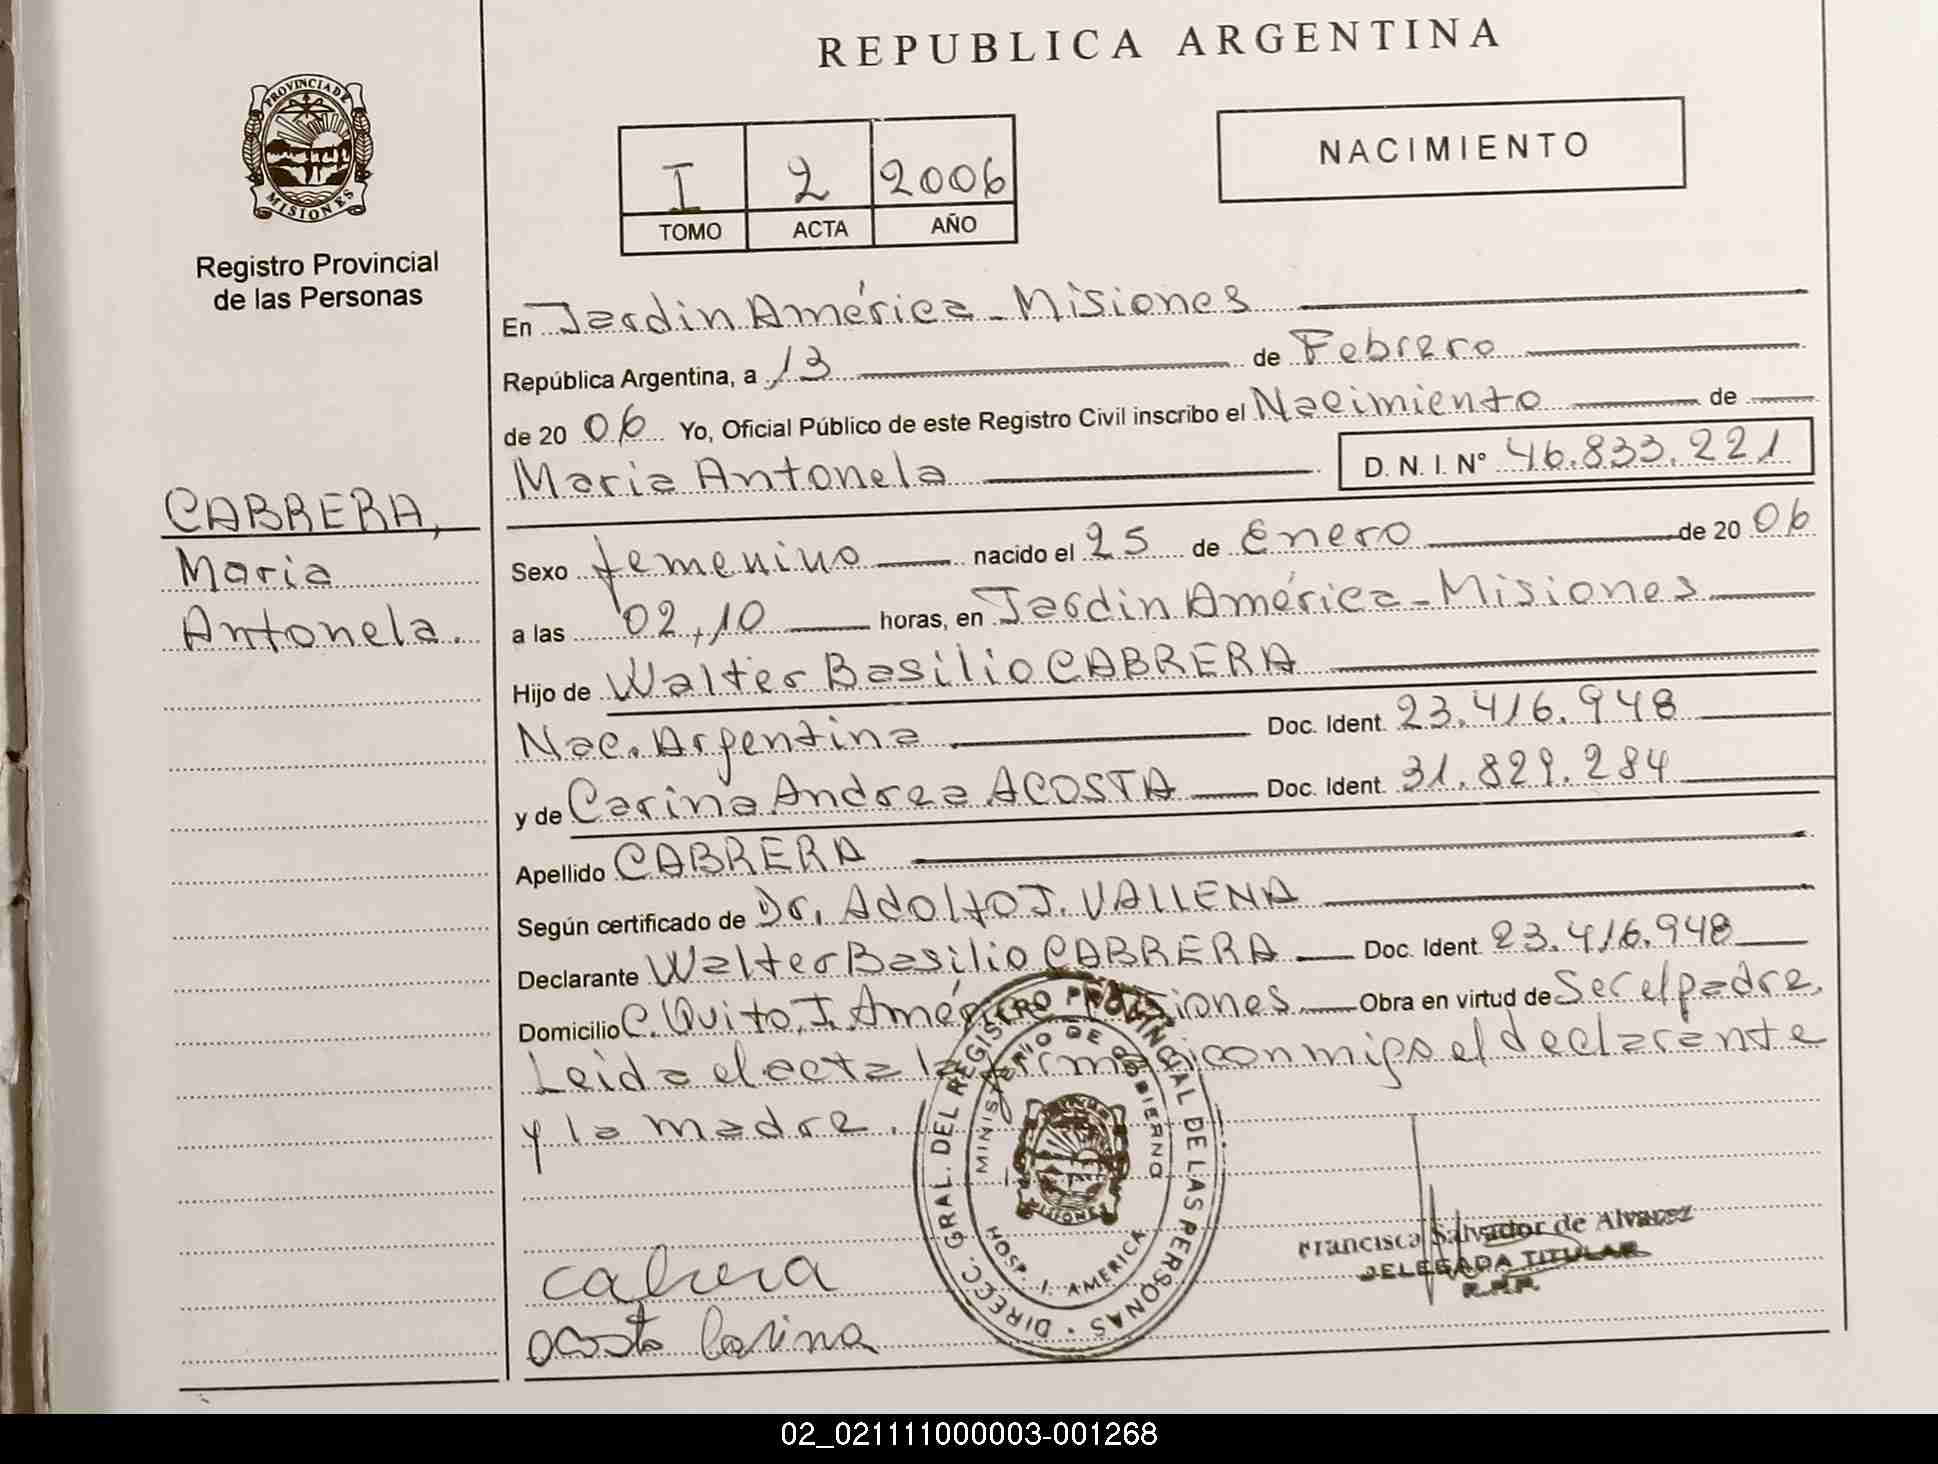 REPUBLICA ARGENTINA
PROVINCIA DE
MISIONES
Registro Provincial
de las Personas
I 2 2006
TOMO ACTA AÑO
NACIMIENTO
CABRERA,
Maria
Antonela.
En Jardin América - Misiones
República Argentina, a 13 de Febrero
de 20 06 Yo, Oficial Público de este Registro Civil inscribo el Nacimiento de
Maria Antonela D. N. I. N° 46.833.221
Sexo femenino nacido el 25 de Enero de 20 06
a las 02,10 horas, en Jardin América - Misiones
Hijo de Walter Basilio CABRERA
Nac. Argentina Doc. Ident. 23.416.948
y de Carina Andrea ACOSTA Doc. Ident. 31.829.284
Apellido CABRERA
Según certificado de Dr. Adolfo J. VALLENA
Declarante Walter Basilio CABRERA Doc. Ident. 23.416.948
Domicilio C. Quito, J. América Misiones Obra en virtud de Ser el padre,
Leida el acta la firman conmigo el declarante
y la madre.
DIRECC. GRAL. DEL REGISTRO PROVINCIAL DE LAS PERSONAS
MINISTERIO DE GOBIERNO
MISIONES
HOSP. J. AMERICA
Francisca Salvador de Alvarez
DELEGADA TITULAR
R.P.P.
Cabrera
acosta Carina
02_021111000003-001268